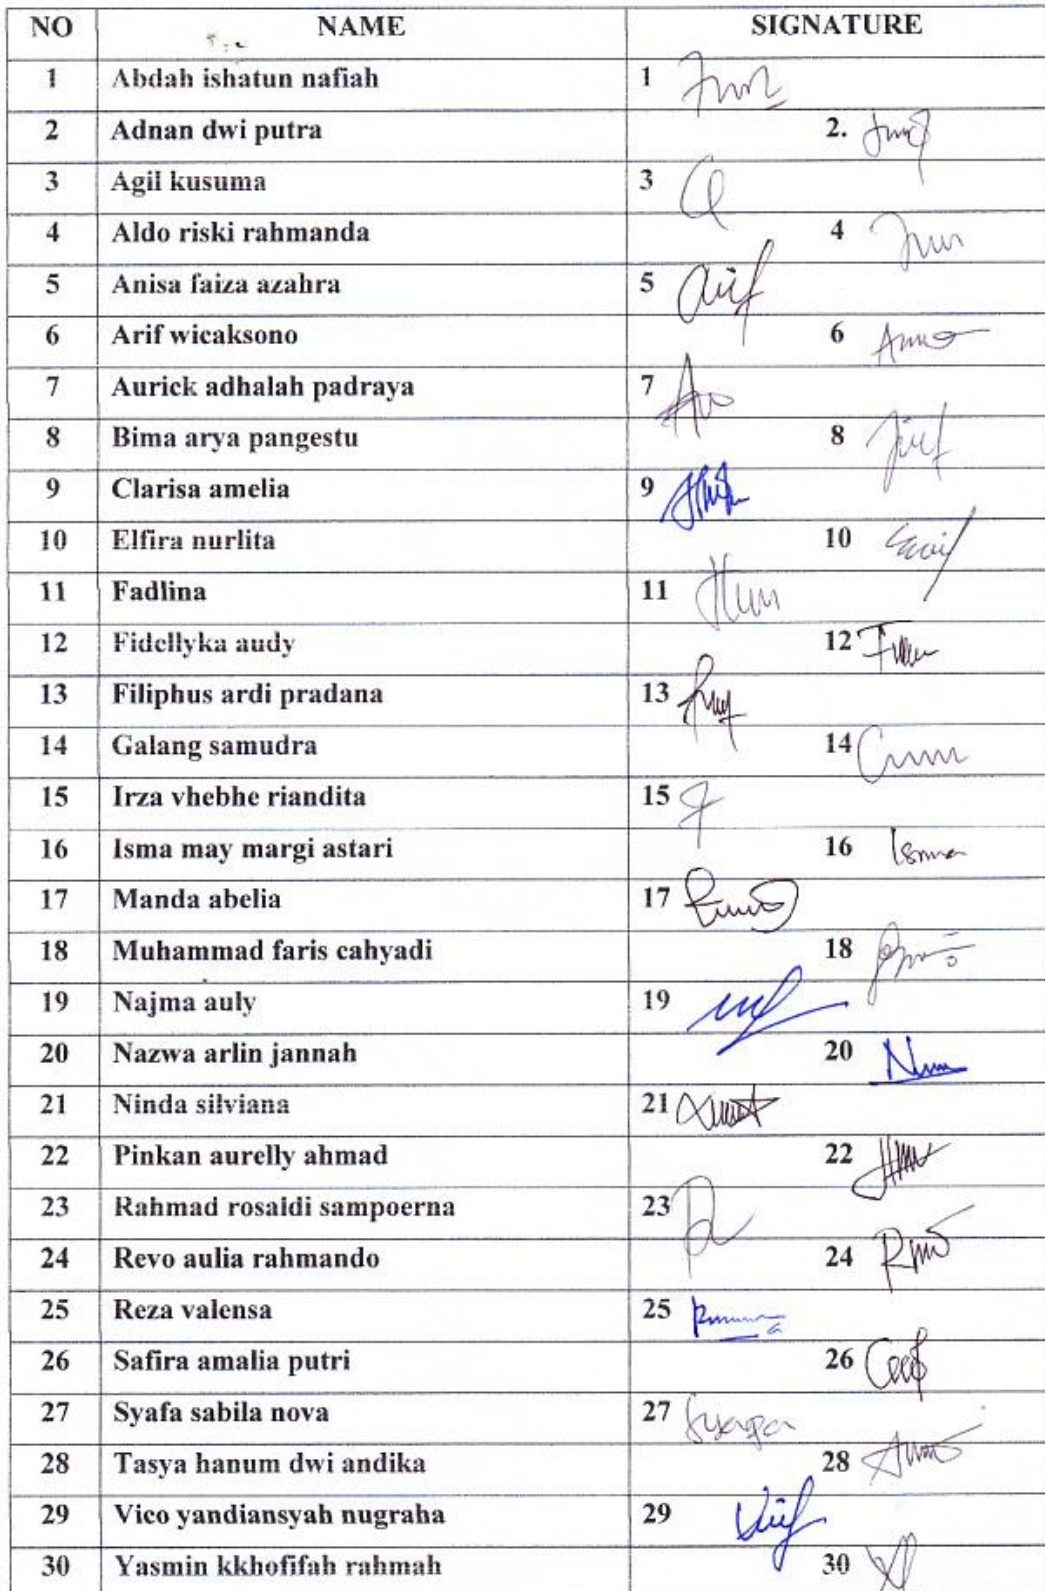 NO NAME SIGNATURE
1 Abdah ishatun nafiah 1
2 Adnan dwi putra 2.
3 Agil kusuma 3
4 Aldo riski rahmanda 4
5 Anisa faiza azahra 5
6 Arif wicaksono 6
7 Aurick adhalah padraya 7
8 Bima arya pangestu 8
9 Clarisa amelia 9
10 Elfira nurlita 10
11 Fadlina 11
12 Fidellyka audy 12
13 Filiphus ardi pradana 13
14 Galang samudra 14
15 Irza vhebhe riandita 15
16 Isma may margi astari 16 Isma
17 Manda abelia 17
18 Muhammad faris cahyadi 18
19 Najma auly 19
20 Nazwa arlin jannah 20
21 Ninda silviana 21
22 Pinkan aurelly ahmad 22
23 Rahmad rosaidi sampoerna 23
24 Revo aulia rahmando 24
25 Reza valensa 25
26 Safira amalia putri 26
27 Syafa sabila nova 27
28 Tasya hanum dwi andika 28
29 Vico yandiansyah nugraha 29
30 Yasmin kkhofifah rahmah 30